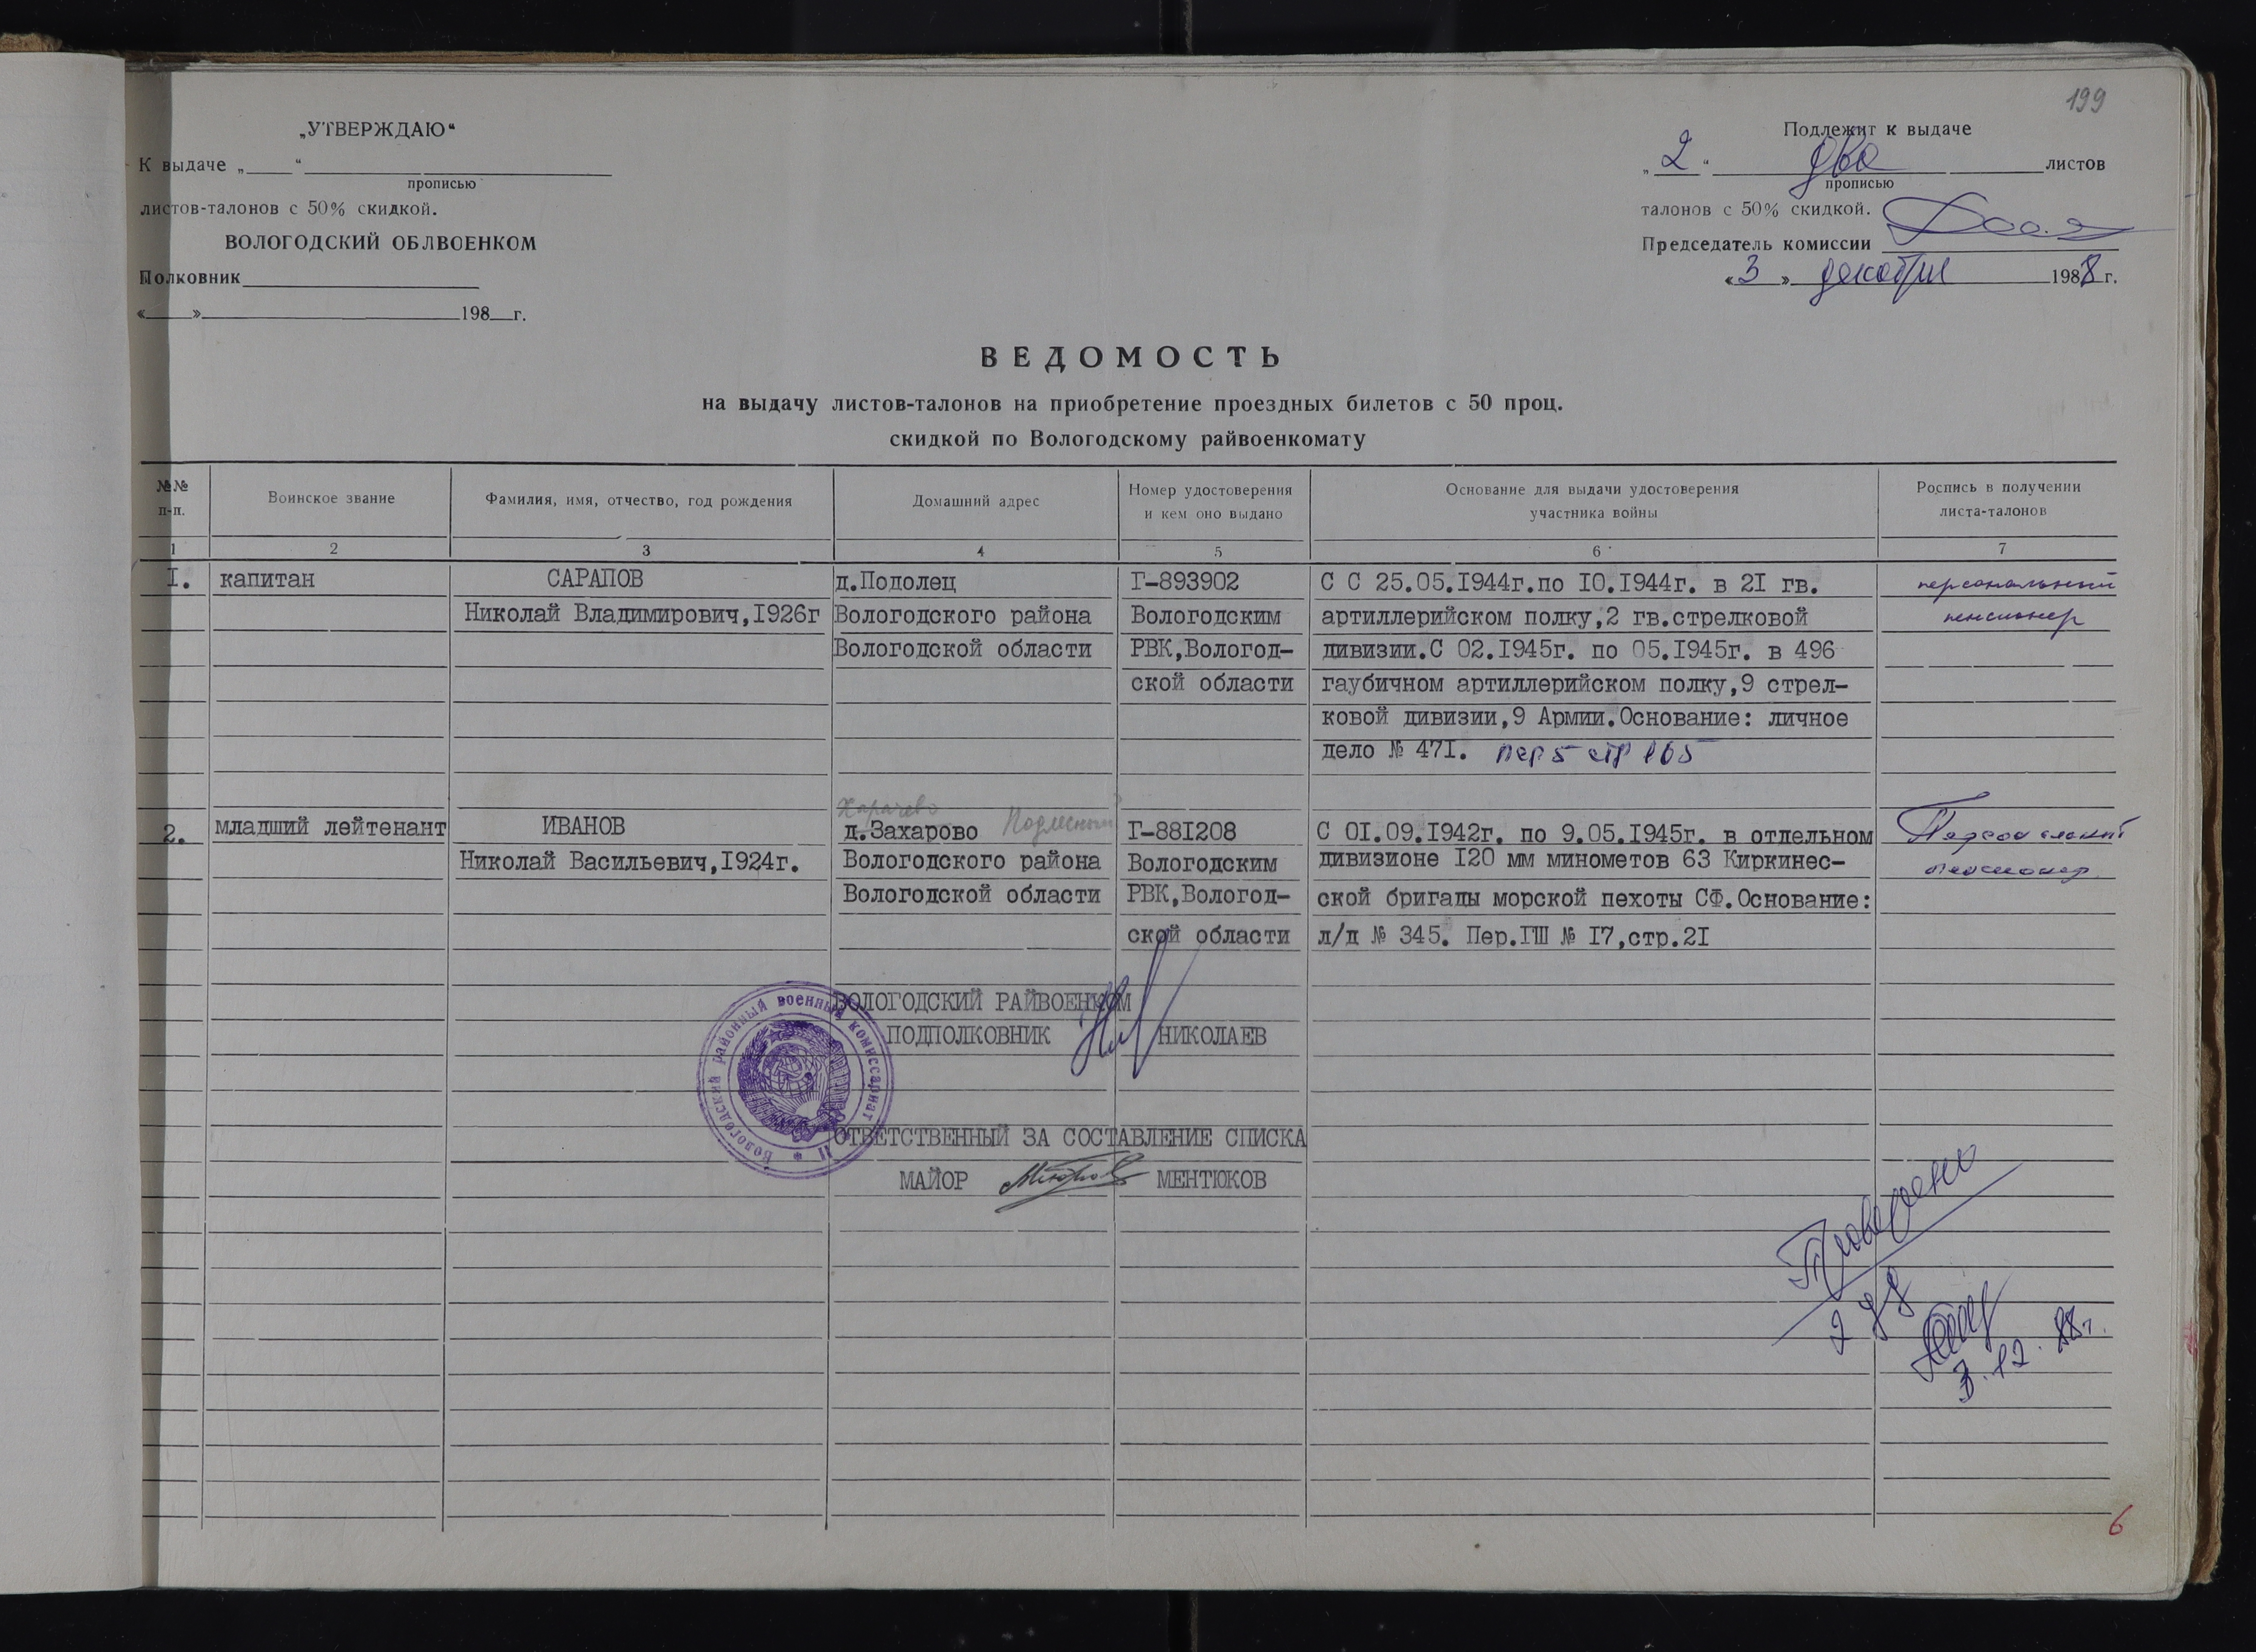 199
„УТВЕРЖДАЮ“
К выдаче „ “
прописью
листов-талонов с 50% скидкой.
ВОЛОГОДСКИЙ ОБЛВОЕНКОМ
Полковник
« » 198 г.
Подлежит к выдаче
„ 2 “ два листов
прописью
талонов с 50% скидкой.
Председатель комиссии
« 3 » декабря 1988 г.
ВЕДОМОСТЬ
на выдачу листов-талонов на приобретение проездных билетов с 50 проц.
скидкой по Вологодскому райвоенкомату
№№ п-п. Воинское звание Фамилия, имя, отчество, год рождения Домашний адрес Номер удостоверения и кем оно выдано Основание для выдачи удостоверения участника войны Роспись в получении листа-талонов
1 2 3 4 5 6 7
I. капитан САРАПОВ д.Подолец Г-893902 С С 25.05.I944г.по I0.I944г. в 2I гв. персональный
Николай Владимирович,I926г Вологодского района Вологодским артиллерийском полку,2 гв.стрелковой пенсионер
Вологодской области РВК,Вологод- дивизии.С 02.I945г. по 05.I945г. в 496
ской области гаубичном артиллерийском полку,9 стрел-
ковой дивизии,9 Армии.Основание: личное
дело № 47I. пер 5 стр 165
Харачево
2. младший лейтенант ИВАНОВ д.Захарово Подлесный Г-88I208 С 0I.09.I942г. по 9.05.I945г. в отдельном Персональный
Николай Васильевич,I924г. Вологодского района Вологодским дивизионе I20 мм минометов 63 Киркинес- пенсионер
Вологодской области РВК,Вологод- ской бригады морской пехоты СФ.Основание:
ской области л/д № 345. Пер.ГШ № I7,стр.2I
ВОЛОГОДСКИЙ РАЙВОЕНКОМ
ПОДПОЛКОВНИК НИКОЛАЕВ
Вологодский районный военный комиссариат
ОТВЕТСТВЕННЫЙ ЗА СОСТАВЛЕНИЕ СПИСКА
МАЙОР МЕНТЮКОВ
Проверено
3.12.88г.
6